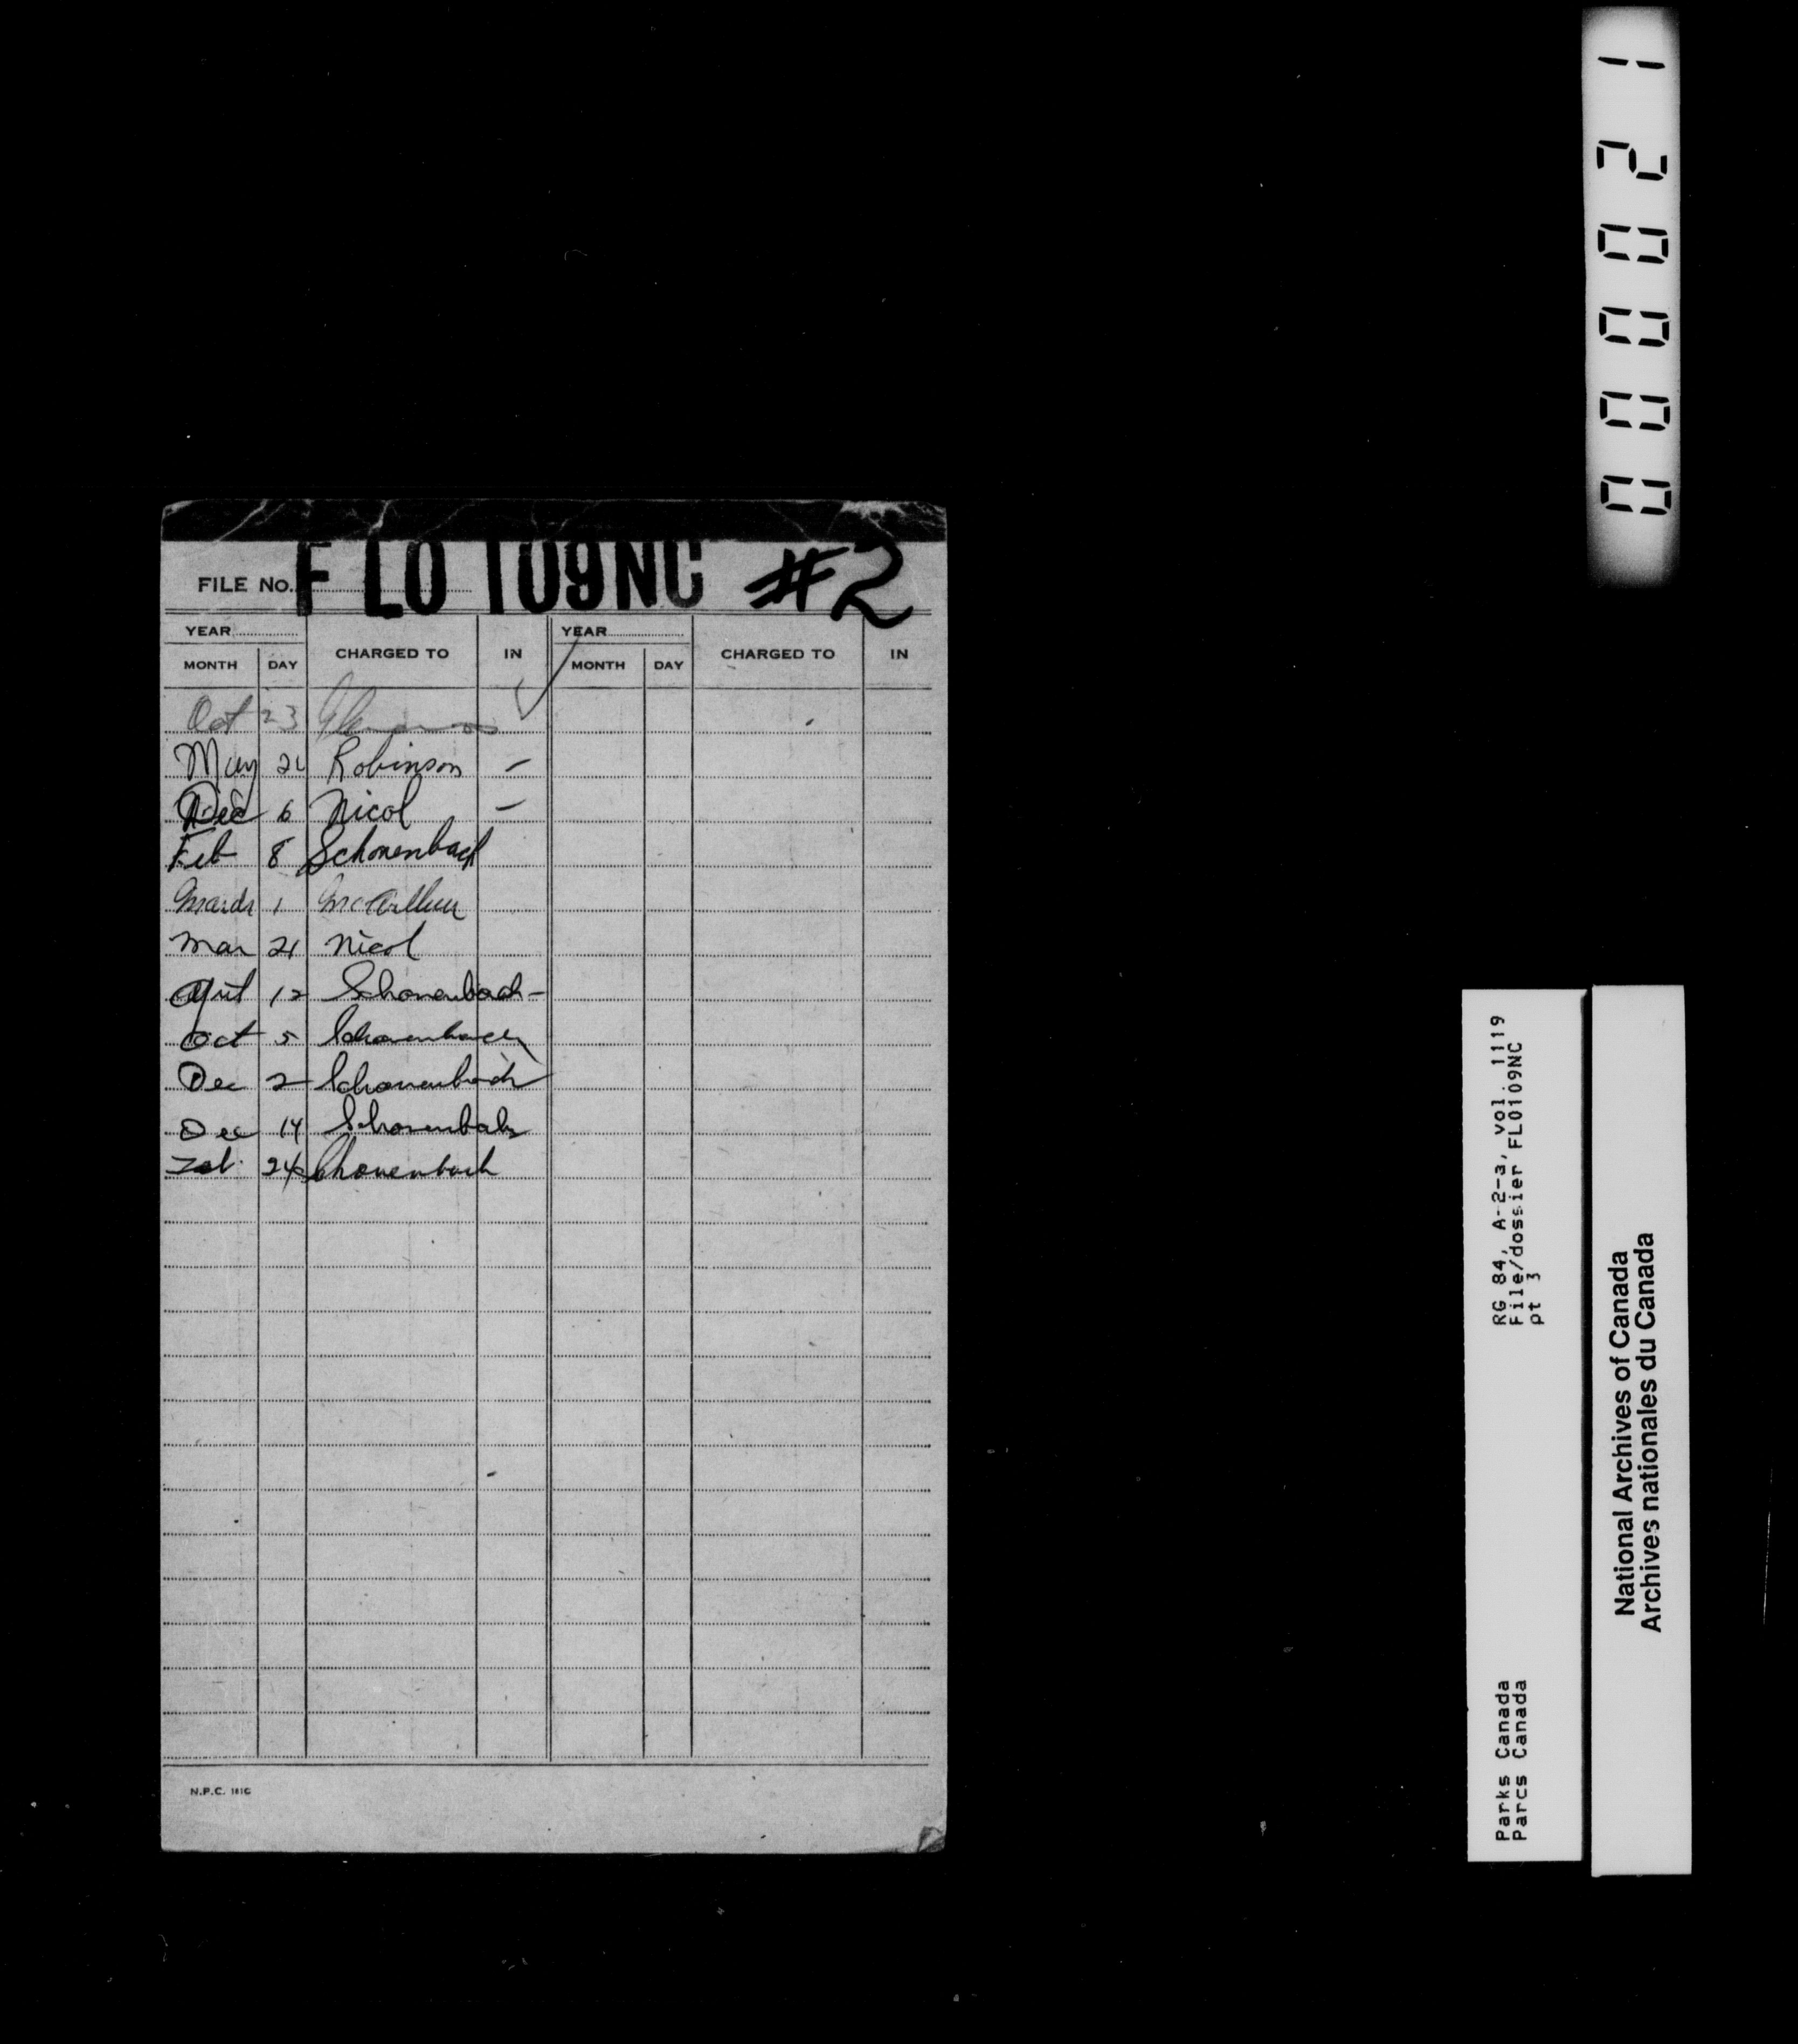 FILE No. FLO 109NC #2
YEAR YEAR
MONTH DAY CHARGED TO IN MONTH DAY CHARGED TO IN
Oct 23 ✓
May 21 Robinson -
Dec 6 Nicol -
Feb 8 Schonenbach
March 1 McArthur
Mar 21 Nicol
April 12 Schonenbach -
Oct 5 Schonenbach
Dec 2 Schonenbach
Dec 14 Schonenbach
Feb. 24 Schonenbach
N.P.C. 181C
000021
RG 84, A-2-a, vol. 1119
File/dossier FLO109NC
pt 3
Parks Canada
Parcs Canada
National Archives of Canada
Archives nationales du Canada